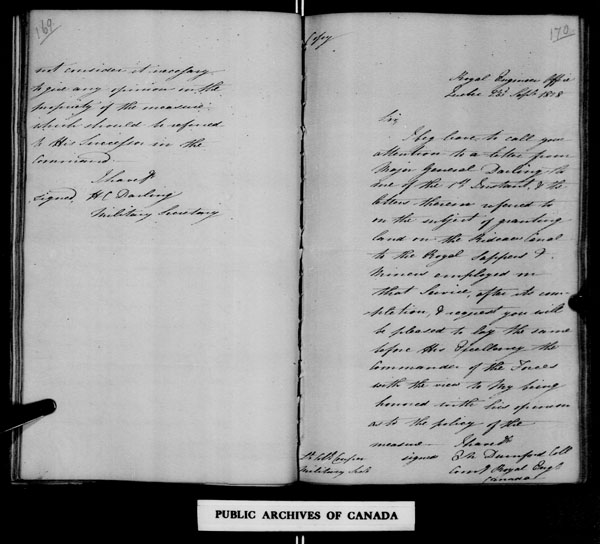 169
not consider it necessary
to give any opinion on the
propriety of the measure
which should be referred
to His Successor in the
Command.
I have &c
signed, H C Darling
Military Secretary
170
Copy
Royal Engineer Office
Quebec 23d Septr 1828
Sir,
I beg leave to call your
attention to a letter from
Major General Darling to
me of the 1st Instant, & the
letters therein referred to
on the subject of granting
land on the Rideau Canal
to the Royal Sappers &
Miners employed in
that Service, after its com-
pletion, & request you will
be pleased to lay the same
before His Excellency the
Commander of the Forces
with the view to my being
honored with his opinion
as to the policy of the
measure I have &c
signed E W Durnford Coll
Lt Coll Couper Comg Royal Engs
Military Secy Canada
PUBLIC ARCHIVES OF CANADA